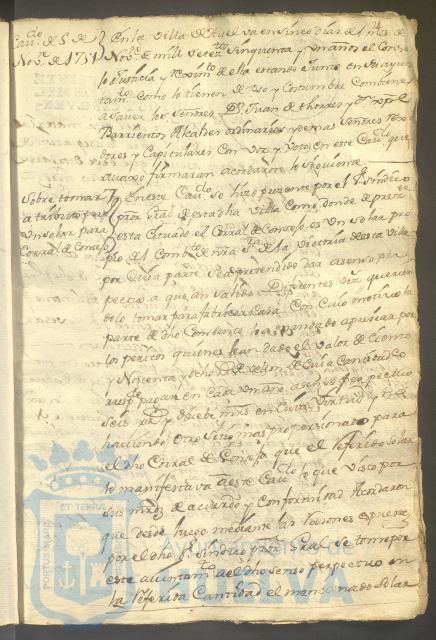 Cav.do de 5 de
Nov.e de 1751
En la Villa de Huelva en sinco dias del mes de
Nov.e de mill setez.os sinquenta y un años el Conse
jo Justicia y Reximi.to de ella estando Junto en su ayun
tam.to como lo tienen de uso y Costumbre Combiene
a Saver los Señores D. Juan de thorres y
Barrientos Alcaldes ordinarios y demas Señores Rexi
dores y Capitulares con Voz y Voto en este Cav.do que
avaxo firmaran acordaron lo Siguiente
Sobre tomar
a tributo
un Solar para
Corral de Consejo
En este Cav.do se hizo presente por el S. Sindico
pror Gral de esta dha Villa Como donde de press.te
esta situado el Corral de Consejo es un Solar pro
pio del Comb.to de nra S.ra de la Victoria de esta Villa
por Cuia parte se a pretendido dar a senso per
petuo a que an salido Diferentes vez. queren
dolo tomar para fabricar Casa Con Cuio motivo la
parte de dho Combento lo a mandado apresiar por
los peritos quienes le an dado el valor de Ciento
y Noventa y ocho R. de vellon de Cuia Cantidad
pagar en Cada un año a senso perpetuo
seis en Cuia Virtud y
haviendo otro Sitio mas proporsionado para
el dho Corral de Consejo que el Referido Solar
lo manifestava a este Cav.do lo que Visto por
sus mrds de acuerdo y Conformidad Acordaron
que desde luego mediante las Rasones expuestas
por el dho S. Sindico pror Gral se tome por
este aiuntam.to a el dho senso perpetuo en
la Referida Cantidad el mensionado Solar
PORTUS MARIS
ET TERRAE
Ayuntamiento de
HUELVA